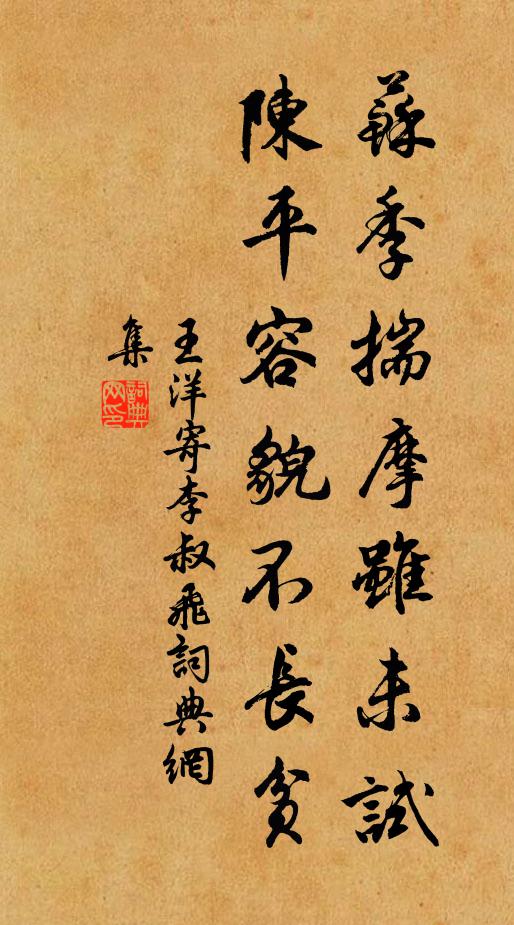 蘇季揣摩雖未試
陳平容貌不長貧
王洋寄李叔飛詞典網
集
詞典
网印